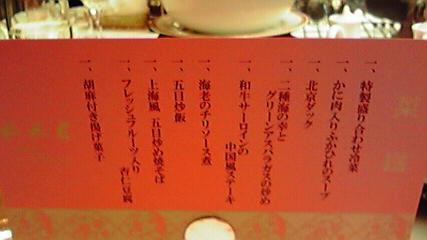 一、特製盛り合わせ冷菜
一、かに肉入りふかひれのスープ
一、北京ダック
一、二種海の幸と
グリーンアスパラガスの炒め
一、和牛サーロインの
中国風ステーキ
一、海老のチリソース煮
一、五目炒飯
一、上海風 五目炒め焼そば
一、フレッシュフルーツ入り
杏仁豆腐
一、胡麻付き揚げ菓子